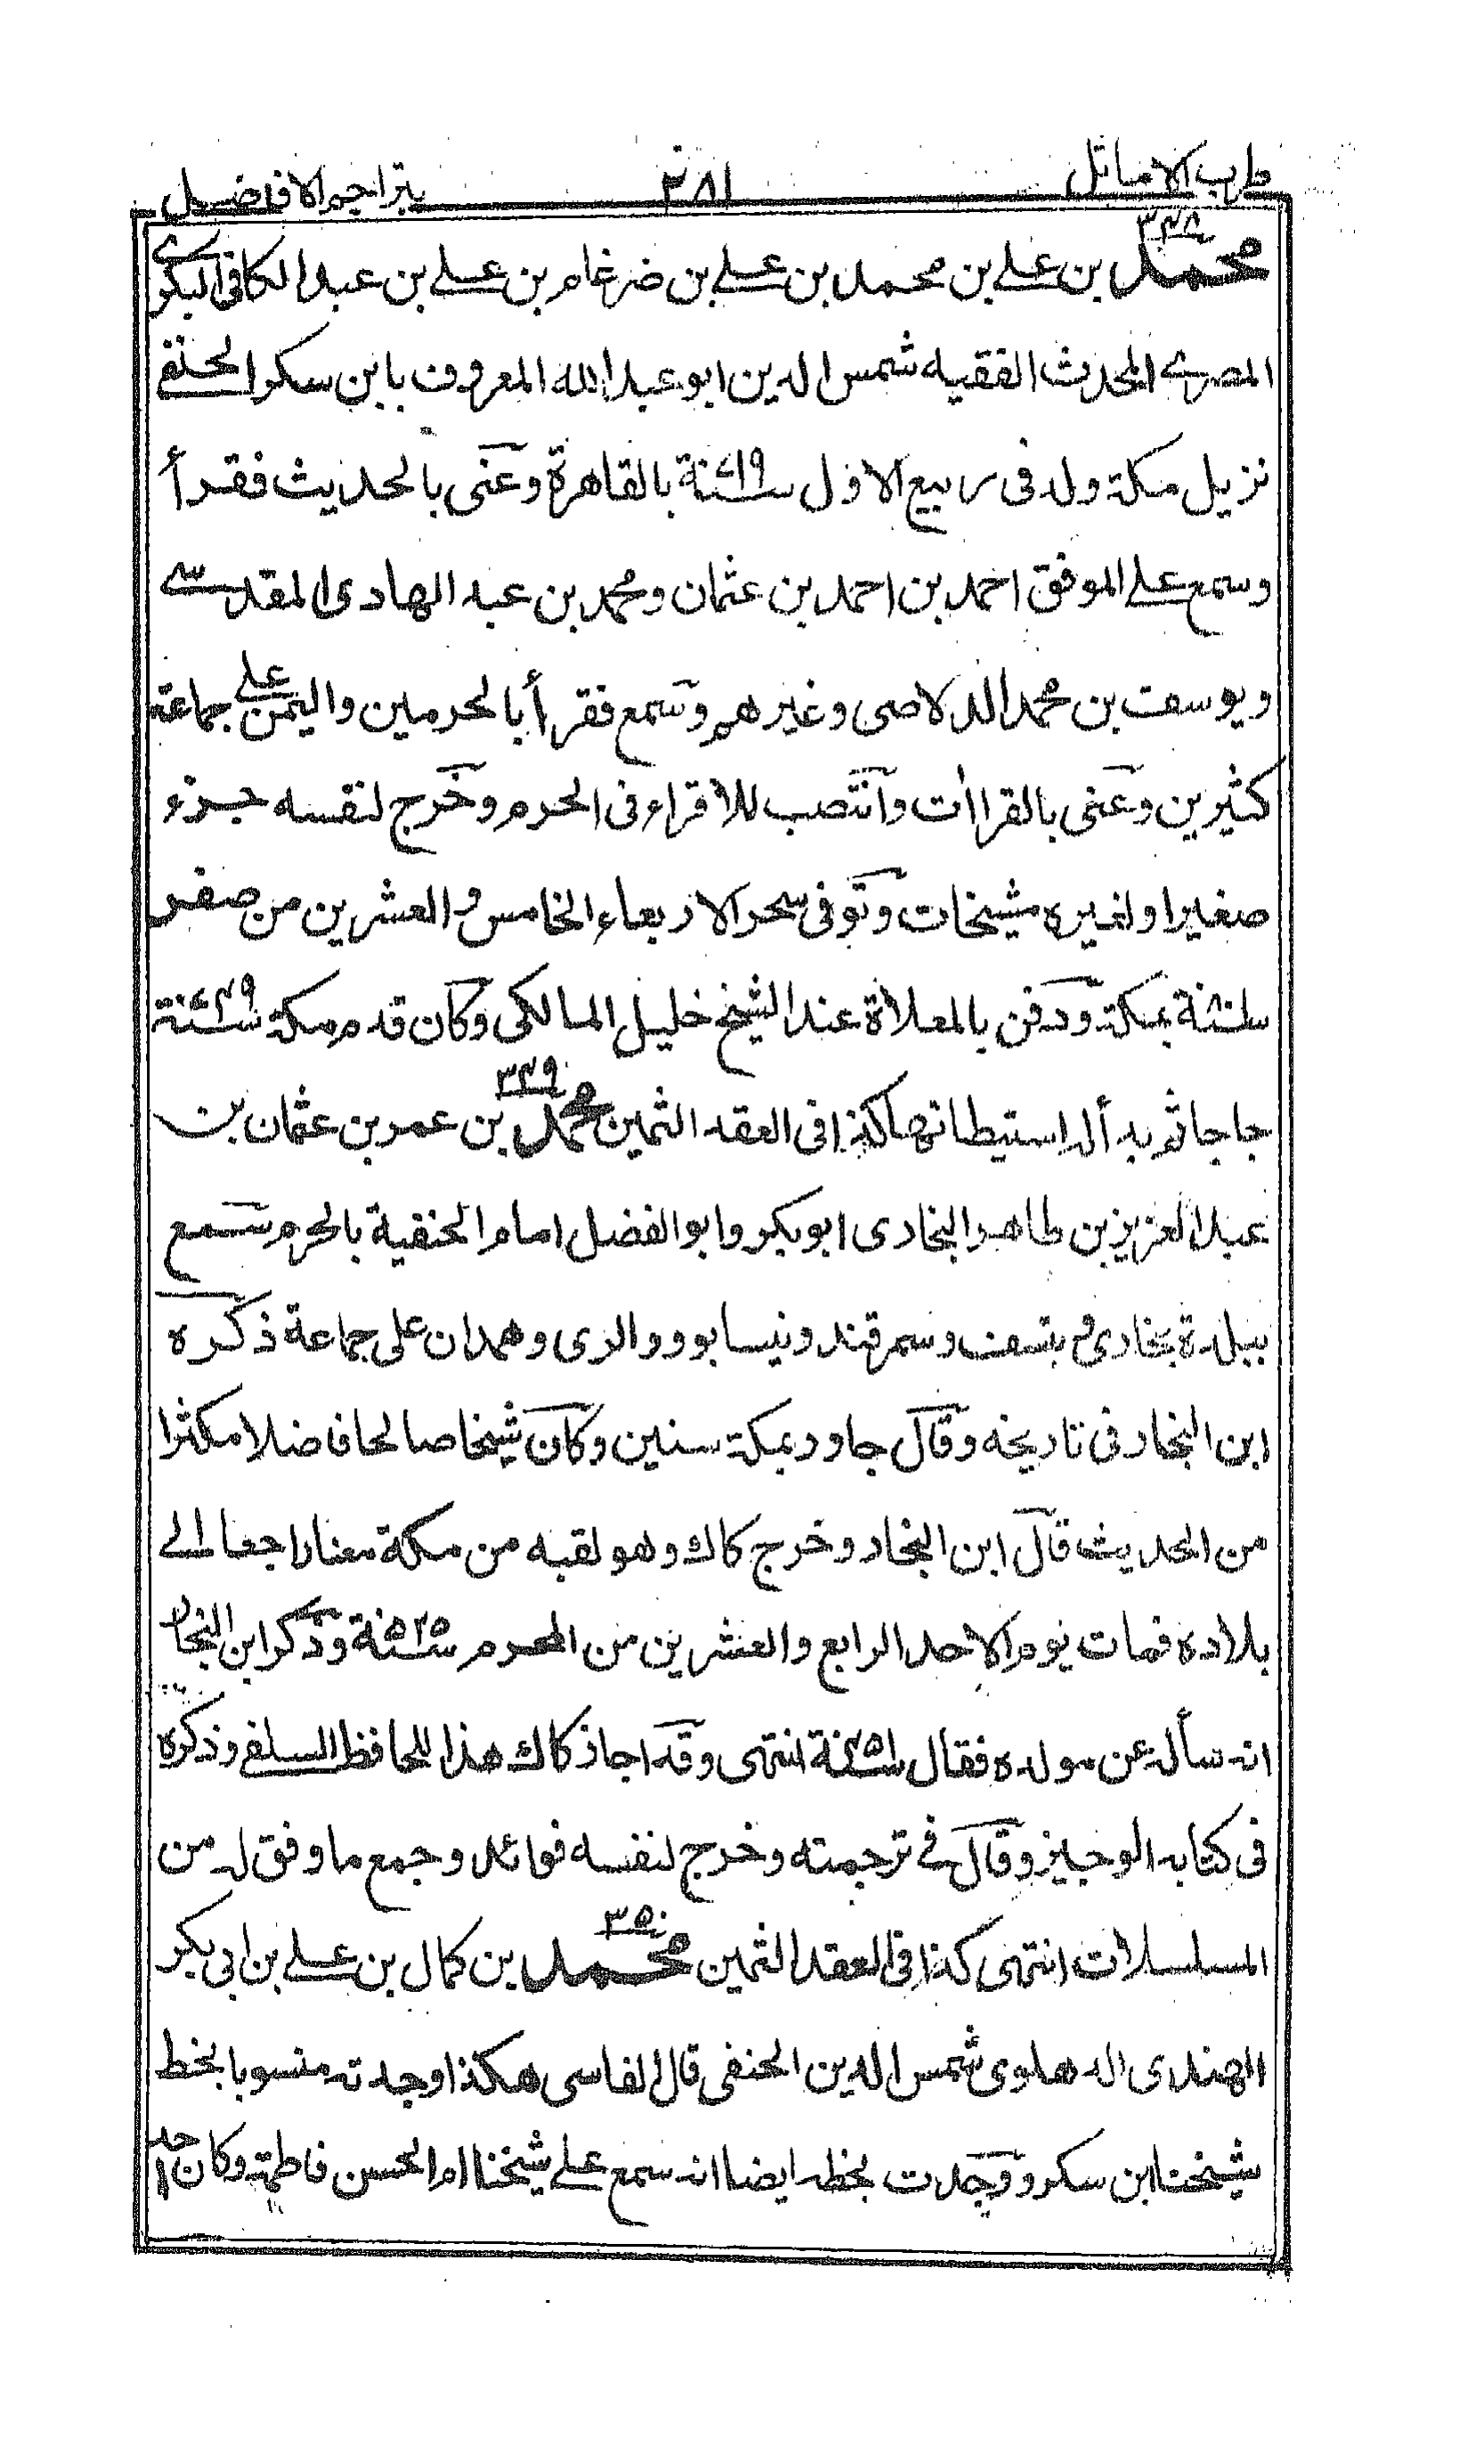 طرب الاماثل ٢٨١ بتراجم الافاضل
٣٤٨
محمد بن علی بن محمد بن علی بن ضرغام بن علی بن عبد الکافی البکری
المصری المحدث الفقیه شمس الدین ابو عبد الله المعروف بابن سکر الحنفی
نزیل مکة ولد فی ربیع الاول سنة ٧١٩ بالقاهرة وعنی بالحدیث فقرأ
وسمع علی الموفق احمد بن احمد بن عثمان ومحمد بن عبد الهادی المقدسی
ویوسف بن محمد الدلاصی وغیرهم وسمع فقرأ بالحرمین والیمن علی جماعة
کثیرین وعنی بالقراأت وانتصب للاقراء فی الحرم وخرج لنفسه جزء
صغیرا ولغیره مشیخات وتوفی سحر الاربعاء الخامس والعشرین من صفر
بمکة ودفن بالمعلاة عند الشیخ خلیل المالکی وکان قدم مکة سنة ٧٤٩
حاجا ثم بدأ له استیطانها کذا فی العقد الثمین ٣٤٩ محمد بن عمر بن عثمان بن
عبد العزیز بن طاهر البخاری ابو بکر وابو الفضل امام الحنفیة بالحرم سمع
ببلدة بخاری و بنسف وسمرقند ونیسابور والری وهمدان علی جماعة ذکره
ابن النجار فی تاریخه وقال جاور بمکة سنین وکان شیخا صالحا فاضلا مکثرا
من الحدیث قال ابن النجار وخرج کاك وهو لقبه من مکة معنا راجعا الی
بلاده فمات یوم الاحد الرابع والعشرین من المحرم سنة ٥٢٥ وذکر ابن النجار
انه سأله عن مولده فقال سنة ٤٥١ انتهی وقد اجاز کاك هذا للحافظ السلفی وذکره
فی کتابه الوجیز وقال فی ترجمته وخرج لنفسه فوائد وجمع ما وفق له من
المسلسلات انتهی کذا فی العقد الثمین ٣٥٠ محمد بن کمال بن علی بن ابی بکر
الهندی الدهلوی شمس الدین الحنفی قال الفاسی هکذا وجدته منسوبا بخط
شیخنا ابن سکر ووجدت بخطه ایضا انه سمع علی شیخنا ام الحسن فاطمة وکان احد